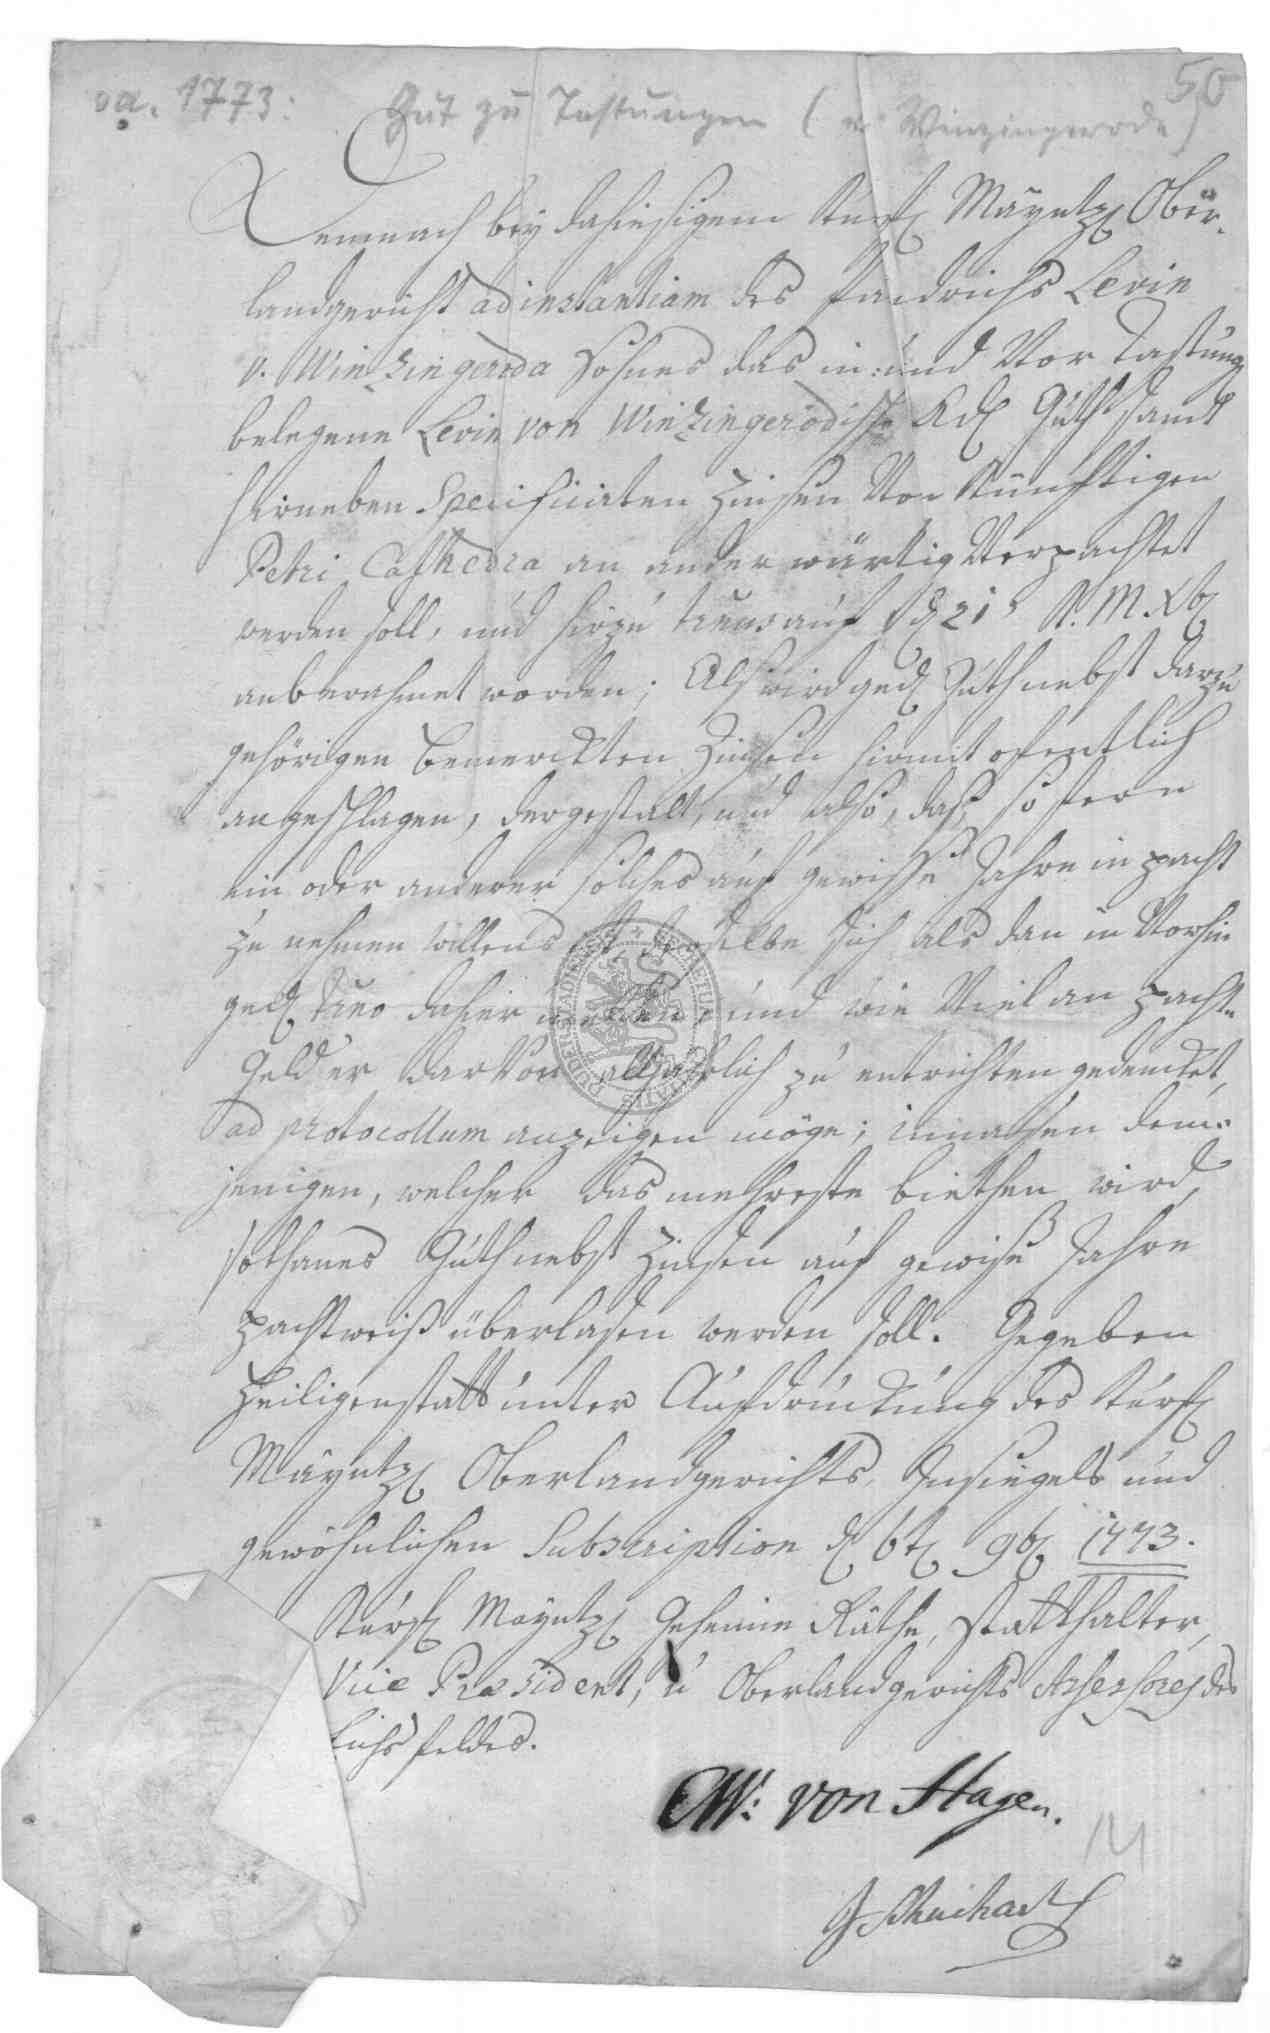 a. 1773: Gut zu Tastungen (v. Winzingerode) 50
Demnach bey dahiesigem Kurf Mayntz Ober-
landgericht ad instantiam des Friedrichs Levin
v. Winzingeroda Sohnes das in: und Vor Tastung
belegene Levin von Winzingerodische Adl Guth samt
hierneben Specificirten Zinsen Von Künftigen
Petri Cathedra an anderwärtig Verpachtet
werden soll, und hirzu auf d 21 
anberahmet worden; Als wird ged Guth nebst darzu
gehörigen bemerckten Zinsen hiermit ofentlich
angeschlagen, dergestalt, und also, daß, so fern
ein oder anderer solches auf gewisse Jahre in pacht
zu nehmen willens ist, derselbe sich als dan in Vorhin
ged dahier melden, und wie Viel an pacht-
Geld er darvor alljährlich zu entrichten gedencket,
ad protocollum anzeigen möge; inmasen dem-
jenigen, welcher das mehreste biethen wird,
sothanes Guth nebst Zinsen auf gewise Jahre
pachtweiß überlasen werden soll. Gegeben
Heiligenstatt unter Aufdruckung des Kurf
Mayntz Oberlandgerichts Insiegels und
gewöhnlichen Subscription d 6t 9b 1773.
Kurf Mayntz Geheime Räthe, Statthalter,
Vice Præsident, u Oberlandgerichts Assessores des
Eichsfeldes.
CW: von Hagen.